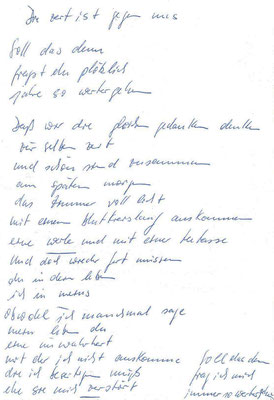 Die zeit ist gegen uns
Soll das denn
fragst du plötzlich
jahre so weitergehen
Daß wir die gleichen gedanken denken
zur selben zeit
und schön sind zusammen
am späten morgen
das zimmer voll licht
mit einer kunstleistung auskommen
eine weile und mit einer teetasse
Und doch wieder fort müssen
du in dein leben
ich in meins
Obwohl ich manchmal sage
mein leben du
eine unwahrheit
mit der ich nicht auskomme
die ich beseitigen muß
ehe sie mich zerstört
Soll das denn
frag ich mich
immer so weitergehn